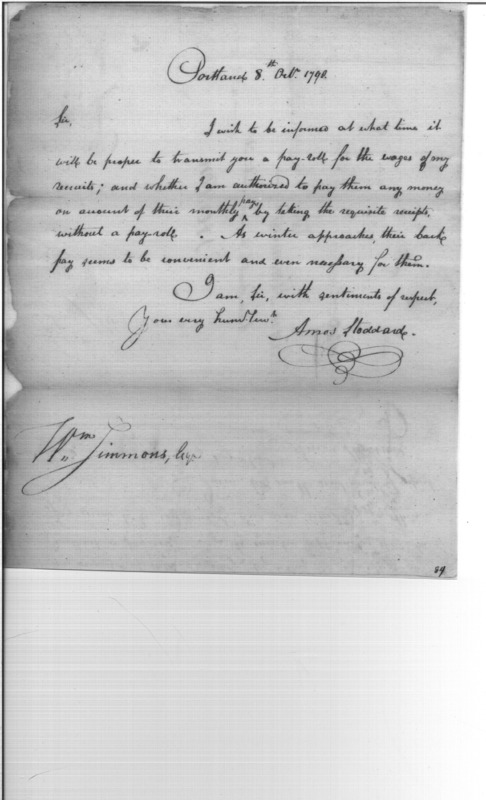 Portland 8th Octr. 1798.
Sir,
I wish to be informed at what time it
will be proper to transmit you a pay-roll for the wages of my
recruits; and whether I am authorised to pay them any money
on account of their monthly pay by taking the requisite receipts,
without a pay-roll. As winter approaches, their back
pay seems to be convenient and even necessary for them.
I am, Sir, with sentiments of respect,
Your very humb. Servt.
Amos Stoddard.
Wm. Simmons, Esqr